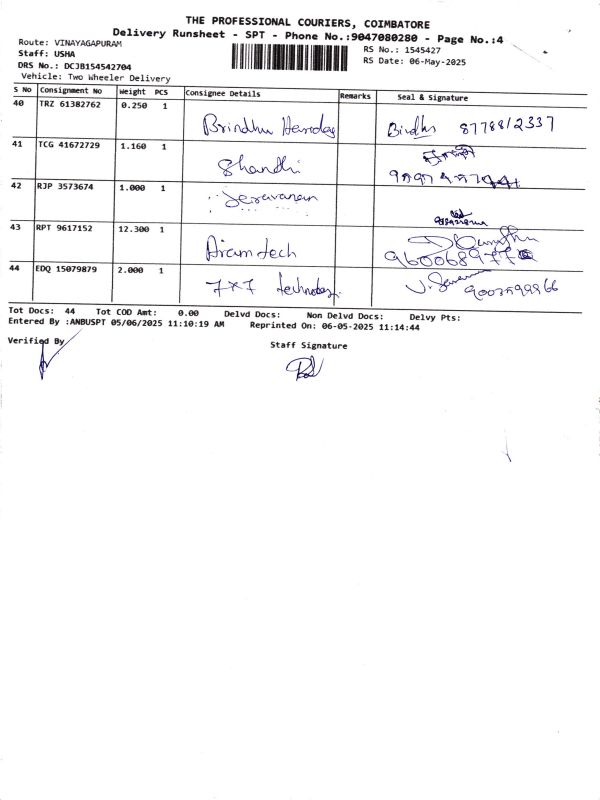 THE PROFESSIONAL COURIERS, COIMBATORE
Delivery Runsheet - SPT - Phone No.:9047080280 - Page No.:4
Route: VINAYAGAPURAM
Staff: USHA
DRS No.: DCJB154542704
Vehicle: Two Wheeler Delivery
RS No.: 1545427
RS Date: 06-May-2025
S No Consignment No Weight PCS Consignee Details Remarks Seal & Signature
40 TRZ 61382762 0.250 1
Brindhu Bindhu 8778812337
41 TCG 41672729 1.160 1
Shandhi
42 RJP 3573674 1.000 1
43 RPT 9617152 12.300 1
Aram tech
44 EDQ 15079879 2.000 1
7*7 technology
Tot Docs: 44 Tot COD Amt: 0.00 Delvd Docs: Non Delvd Docs: Delvy Pts:
Entered By :ANBUSPT 05/06/2025 11:10:19 AM Reprinted On: 06-05-2025 11:14:44
Verified By
Staff Signature